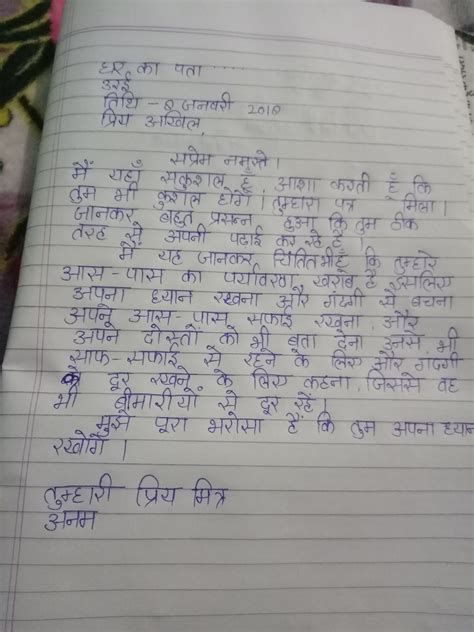 घर का पता .....
उरई
तिथि - 8 जनवरी 2018
प्रिय अखिल,
सप्रेम नमस्ते।
मैं यहाँ सकुशल हूँ, आशा करती हूँ कि
तुम भी कुशल होगे। तुम्हारा पत्र मिला।
जानकर बहुत प्रसन्न हुआ कि तुम ठीक
तरह से अपनी पढाई कर रहे हैं।
मैं यह जानकर चिंतित भी हूँ कि तुम्हारे
आस-पास का पर्यावरण खराब है इसलिए
अपना ध्यान रखना और गंदगी से बचना
अपने आस-पास सफाई रखना और
अपने दोस्तों को भी बता देना उनसे भी
साफ-सफाई से रहने के लिए और गंदगी
दूर रखने के लिए कहना जिससे वह
भी बीमारीयों से दूर रहें।
मुझे पूरा भरोसा हैं कि तुम अपना ध्यान
रखोगे।
तुम्हारी प्रिय मित्र
अनम